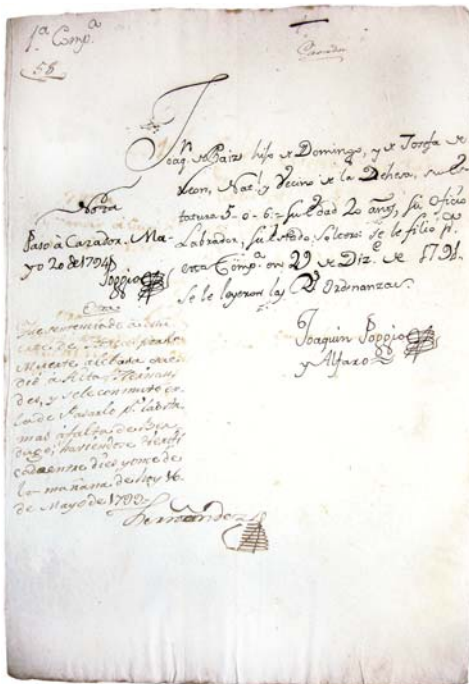 1.ª Comp.ª
58
Cazador
Joaq.n de Paiz hijo de Domingo, y de Josefa de
Leon, Nat.l y Vecino de la Dehesa, su Es-
tatura 5-0-6= su edad 20 años, su Oficio
Labrador, su estado, soltero: se le filió p.a
esta Comp.a en 29 de Diz.e de 1791.
se le leyeron las R.s Ordenanzas.
Joaquin Poggio
y Alfaro
Nota
Pasó à Cazador. Ma-
yo 20 de 1794
Poggio
Otra
Fue sentenciado à
Muerte
dió à Hernan-
des, y se le conmutó en
la de Pasarlo p.r las Ar-
mas à falta de Ver-
dugo; haviendose
entre dies y onse de
la mañana de hoy 16
de Mayo de 1799
Hernandez